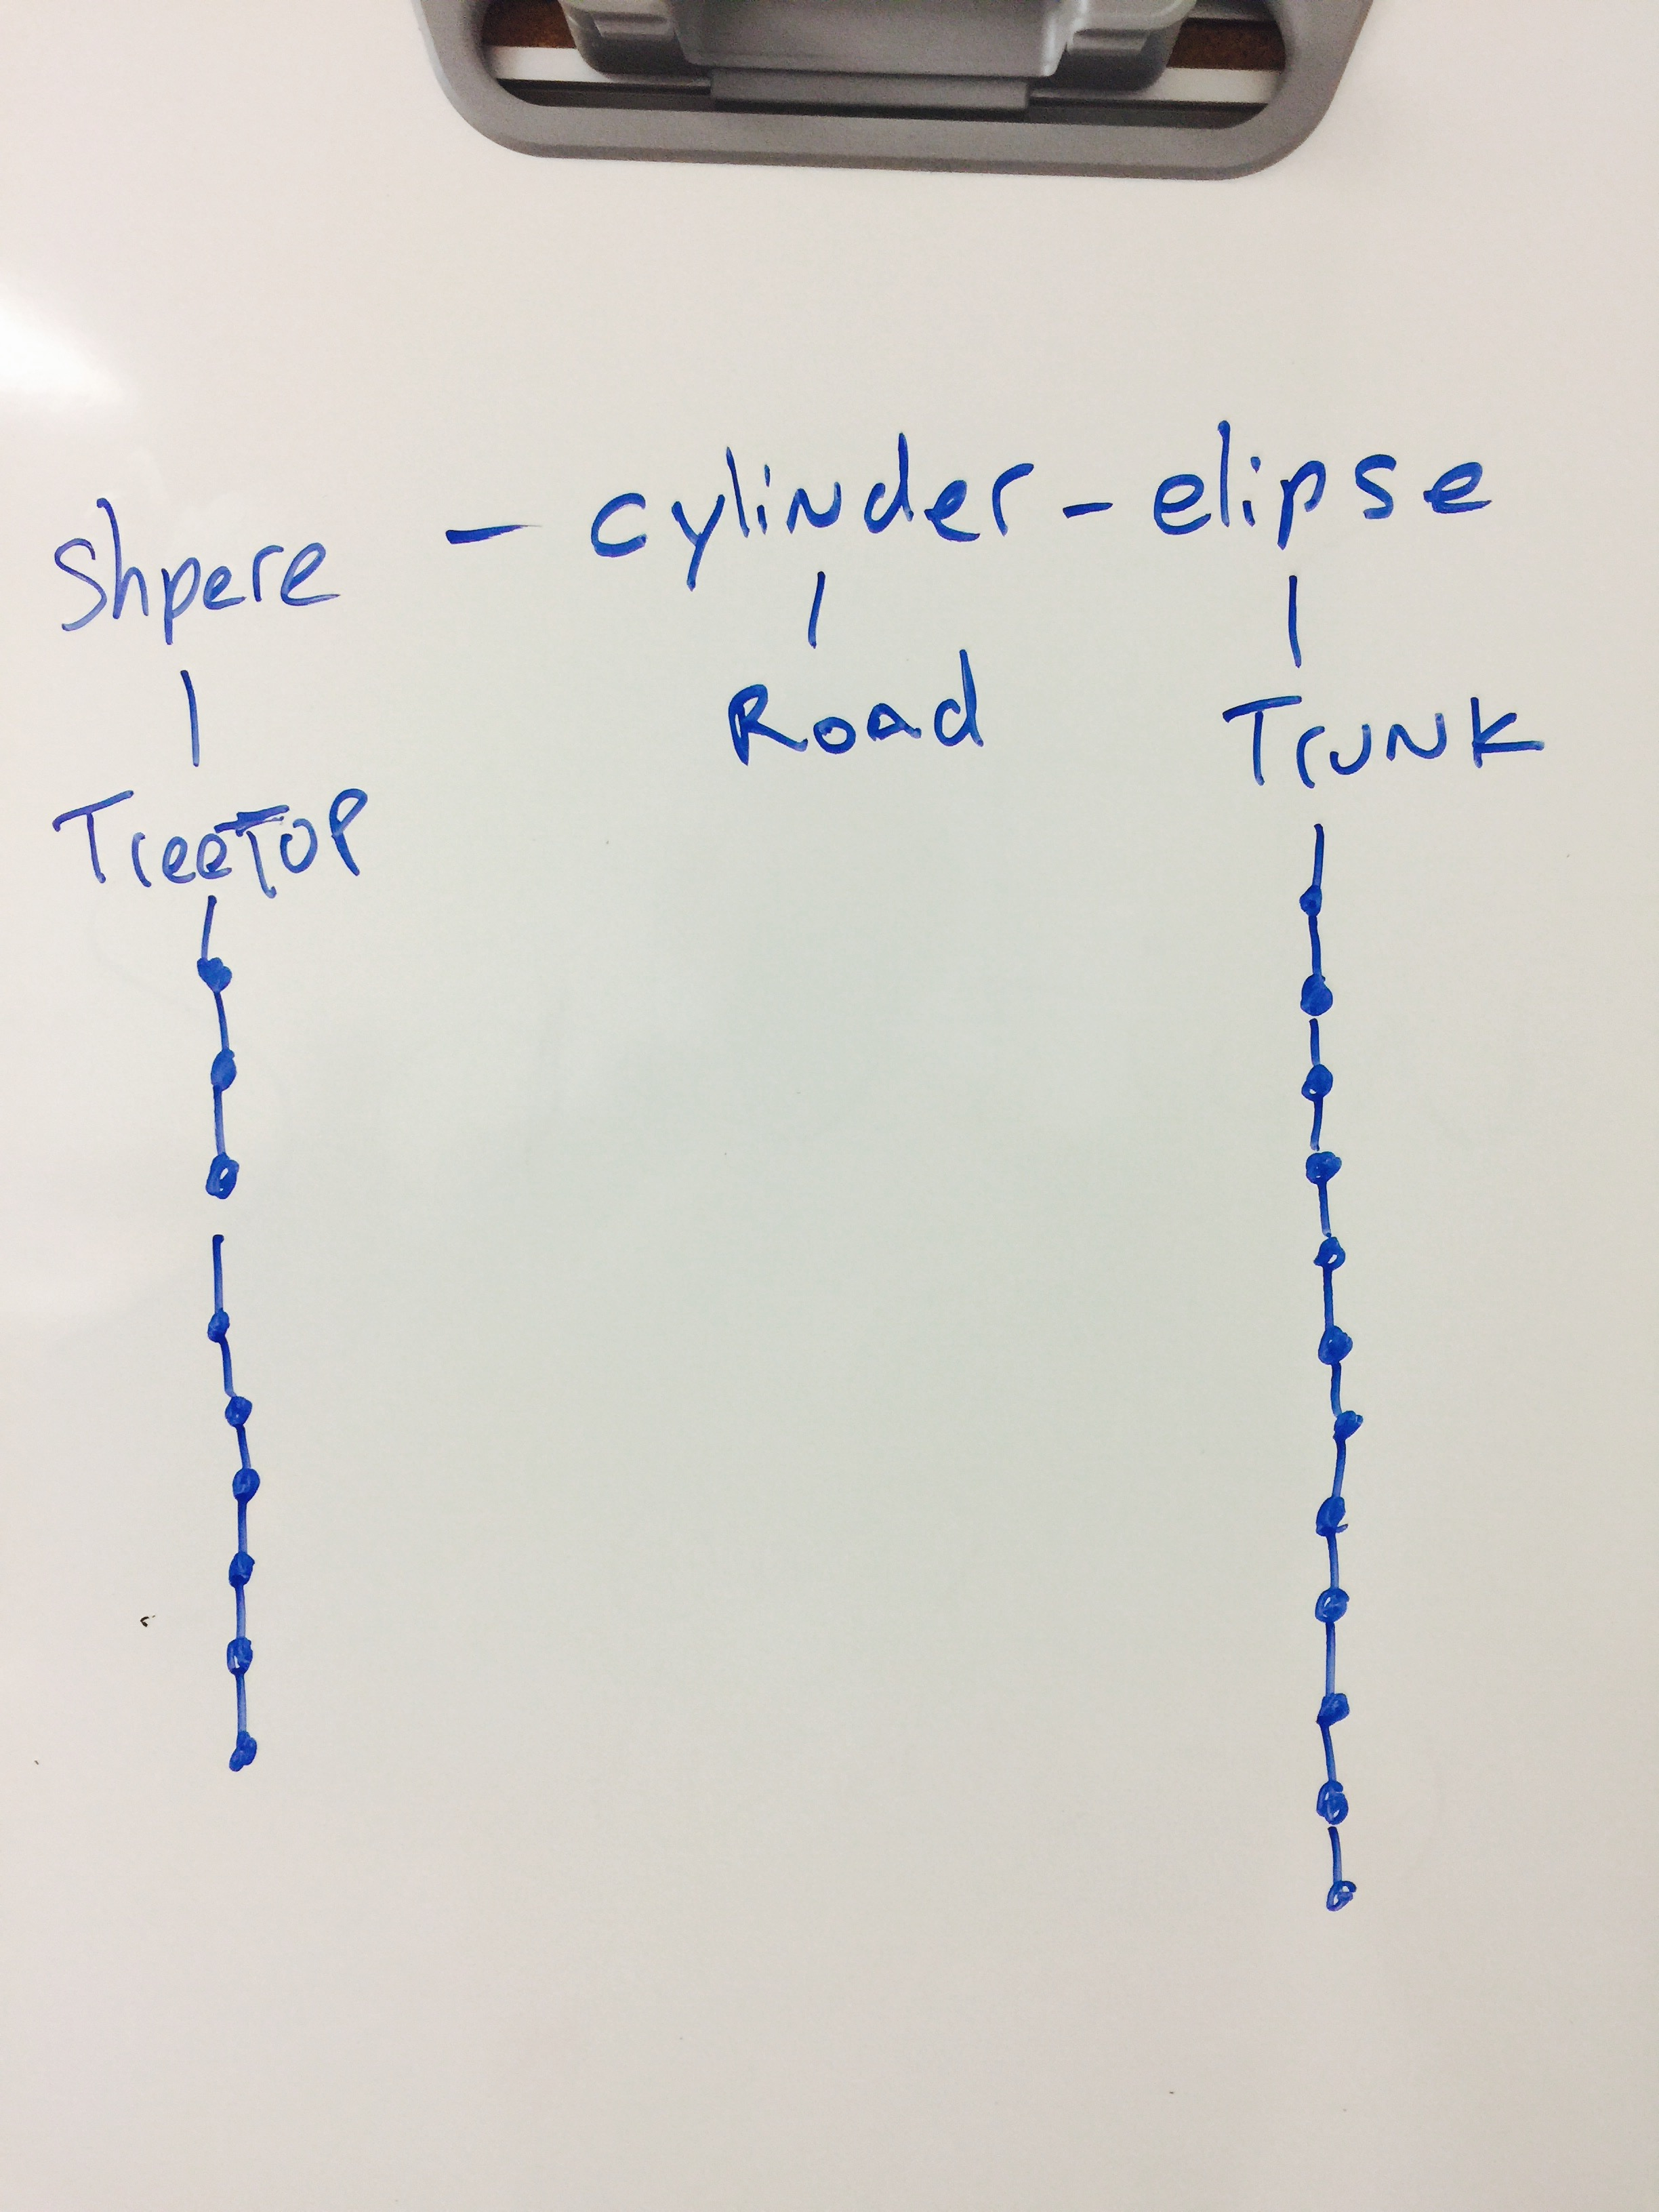 Shpere - cylinder - elipse
Road
Trunk
TreeTop